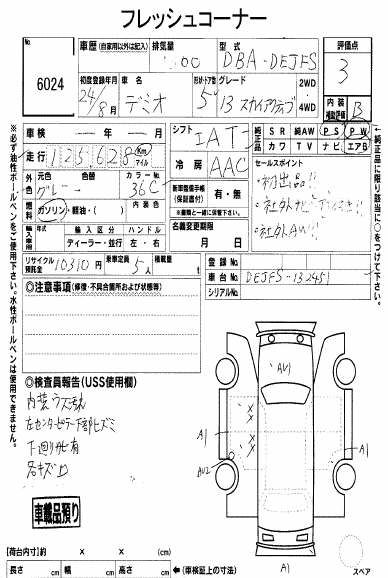 フレッシュコーナー
No. 6024
車歴 (自家用以外は記入) 排気量 型式 評価点
DBA-DEJFS 3
初度登録年月 車名 形状・ドア数 グレード
24/8月 デミオ 5 13 スカイアクティブ
2WD
4WD
内装補助評価 B
車検 ー年ー月
走行 125628 Km マイル
シフト IAT
純正品 SR 純AW PS PW
カワ TV ナビ エアB
外色 元色 色替 カラーNo.
グレー 36C
冷房 AAC
セールスポイント
・初出品!!
・社外AW!!
燃料 ガソリン・軽油・( ) 内装色
新車整備手帳(保証書付) 有・無
※書類と一緒に保管下さい。
輸入車 年式 輸入区分 ハンドル
ディーラー・並行 左・右
名義変更期限
月 日
リサイクル預託金 10310円 乗車定員 5人 積載量
登録No.
車台No. DEJFS-132451
シリアルNo.
◎注意事項 (修復・不具合箇所および状態等)
◎検査員報告(USS使用欄)
内装ウス汚れ
左センターピラー下部ヒズミ
下廻りサビ有
各キズ
車載品預り
AU1
A1
A1
AU2
A1
スペア
【荷台内寸】約 × × (cm)
長さ cm 幅 cm 高さ cm ←(車検証上の寸法)
※必ず油性ボールペンをご使用下さい。水性ボールペンは使用できません。